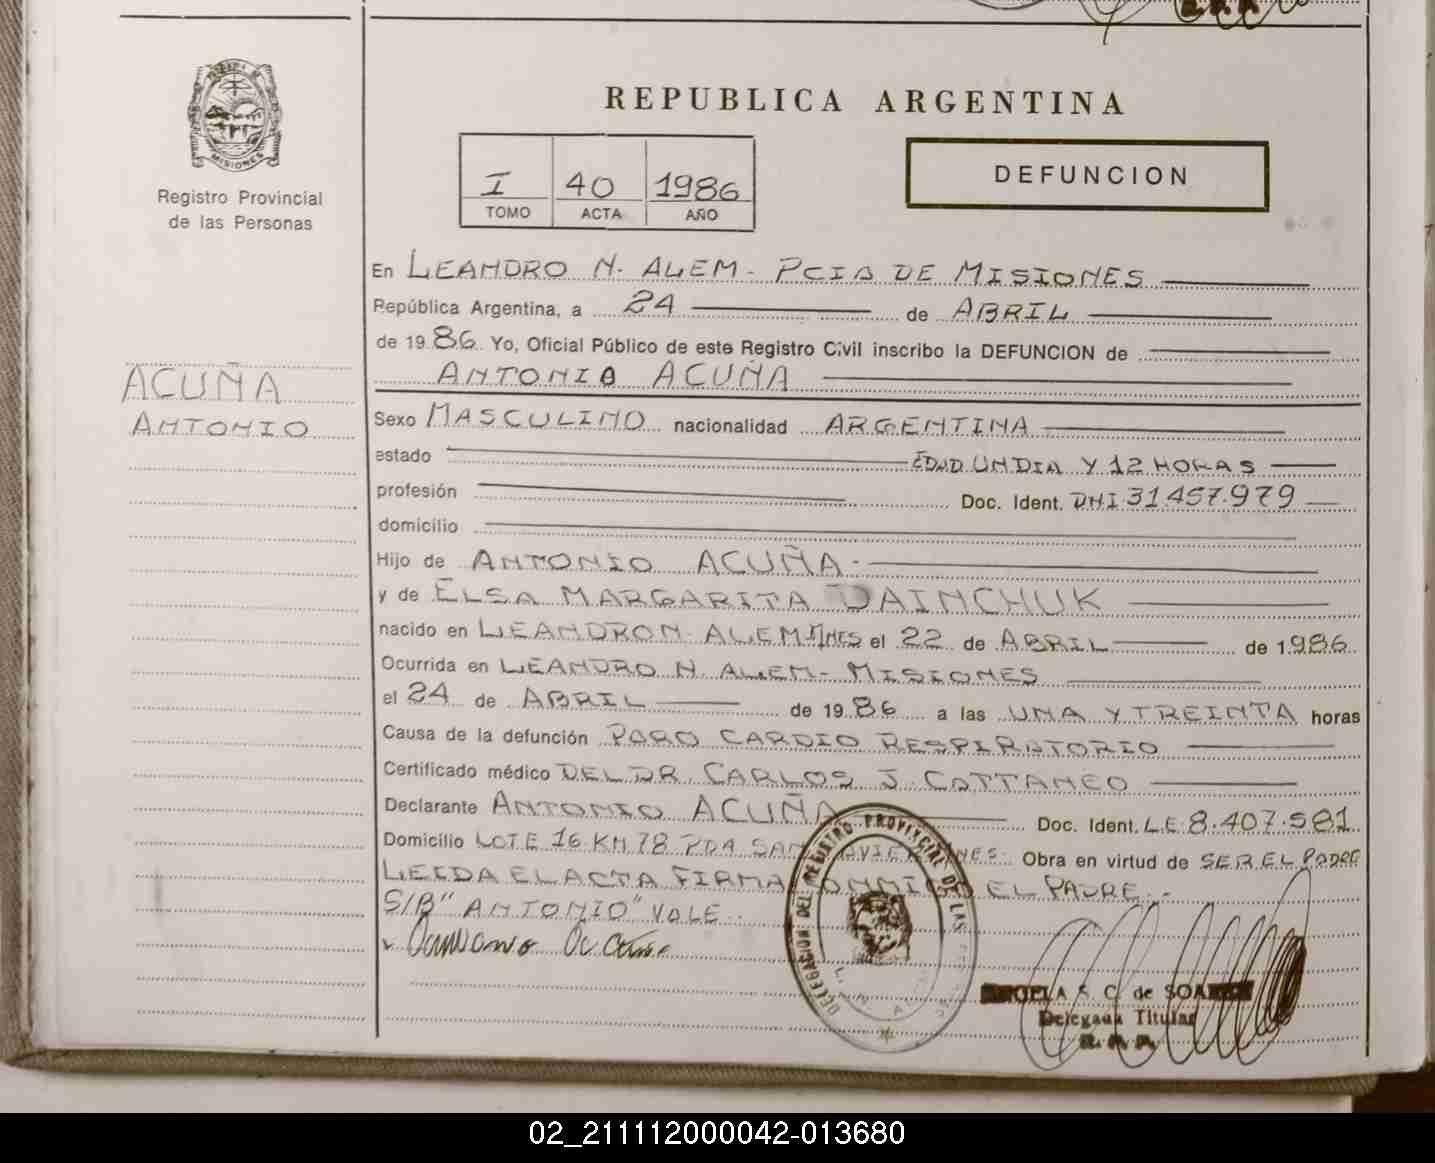 MISIONES
Registro Provincial
de las Personas
ACUÑA
ANTONIO
REPUBLICA ARGENTINA
I 40 1986
TOMO ACTA AÑO
DEFUNCION
En LEANDRO N. ALEM - PCIA DE MISIONES
República Argentina, a 24 de ABRIL
de 1986. Yo, Oficial Público de este Registro Civil inscribo la DEFUNCION de
ANTONIO ACUÑA
Sexo MASCULINO nacionalidad ARGENTINA
estado EDAD UN DIA Y 12 HORAS
profesión Doc. Ident. DNI 31.457.979
domicilio
Hijo de ANTONIO ACUÑA.
y de ELSA MARGARITA DAINCHUK
nacido en LEANDRO N. ALEM MNES el 22 de ABRIL de 1986
Ocurrida en LEANDRO N. ALEM - MISIONES
el 24 de ABRIL de 1986 a las UNA Y TREINTA horas
Causa de la defunción PARO CARDIO RESPIRATORIO
Certificado médico DEL DR. CARLOS J. CATTANEO
Declarante ANTONIO ACUÑA Doc. Ident. L.E. 8.407.581
Domicilio LOTE 16 KM 78 PDA SAN JAVIER MNES. Obra en virtud de SER EL PADRE
LEIDA EL ACTA FIRMA CONMIGO EL PADRE.-
S/B "ANTONIO" VALE.
DELEGACION DEL REGISTRO PROVINCIAL DE LAS
S. C. de
Delegada Titular
R. P. P.
02_211112000042-013680